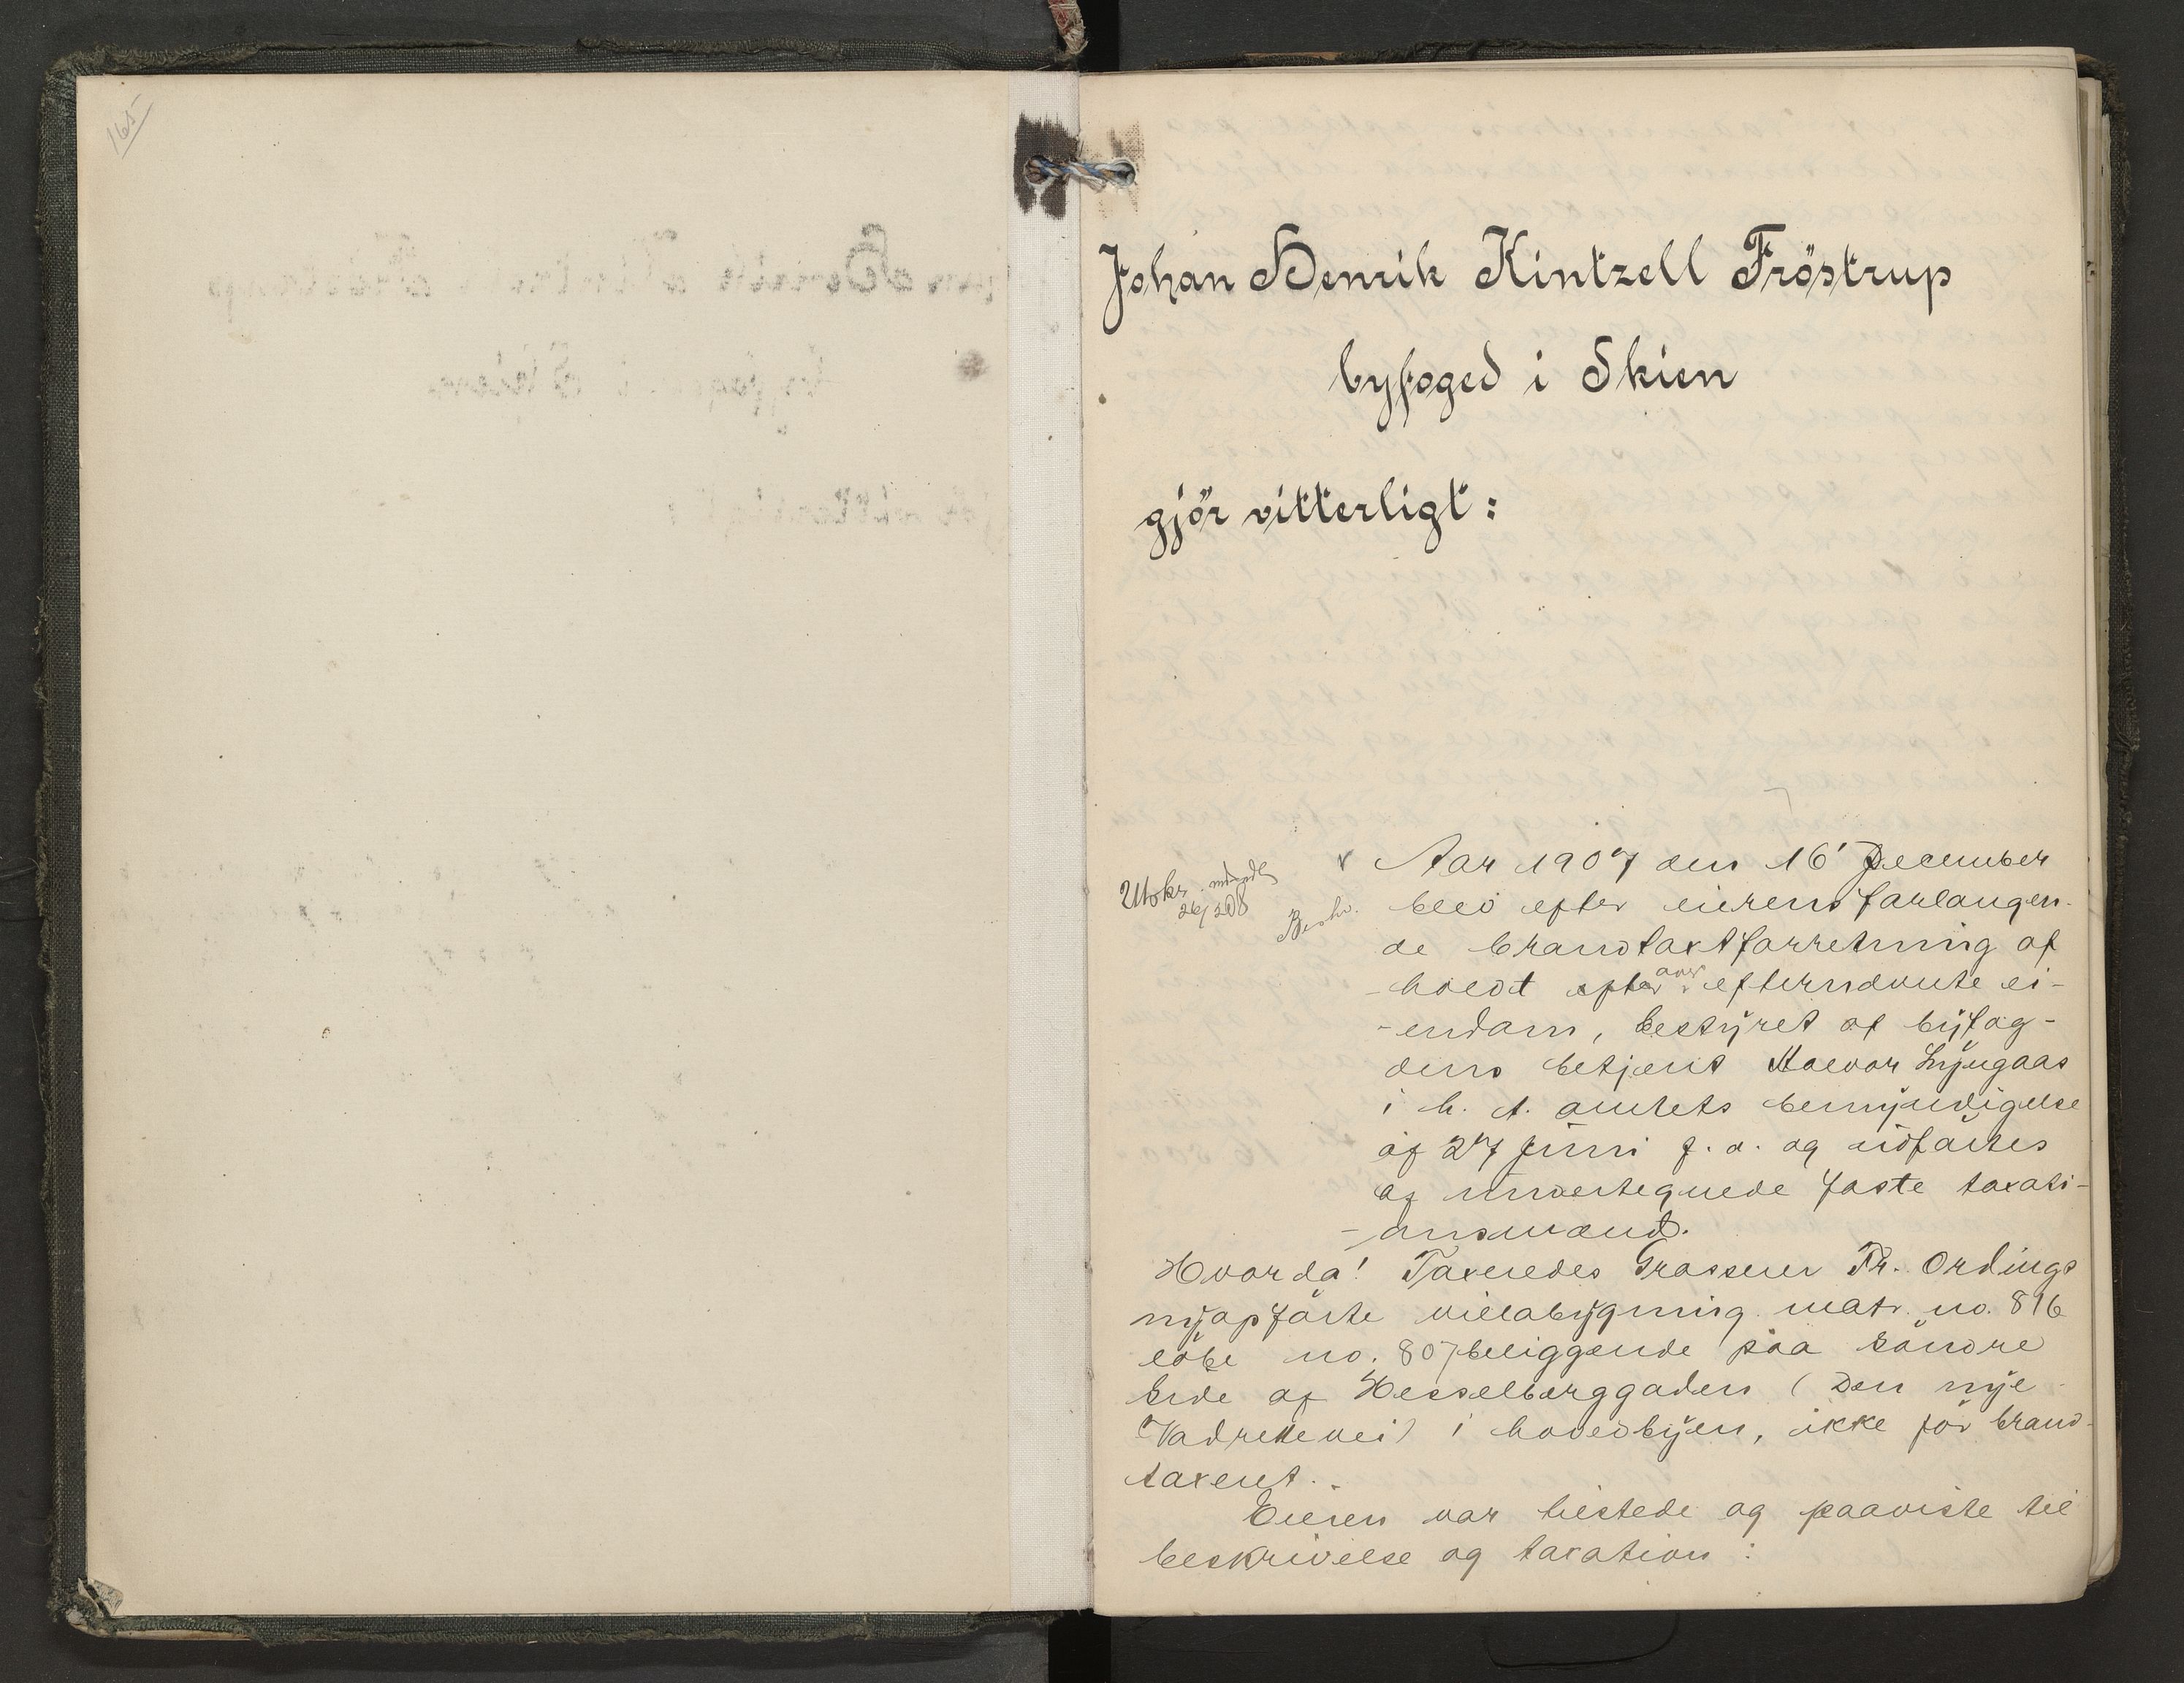 165
Johan Henrik Kintzell Fröstrup
byfoged i Skien
gjör vitterligt:
Utskr. 
26/2 08
Beskr.
Aar 1907 den 16' December
blev efter eierens forlangen-
de brandtaxtforretning af
-holdt efter over efternævnte ei-
-endom, bestyret af byfog-
dens betjent Halvor Lyngaas
i h. t. amtets bemyndigelse
af 27 Juni f. a. og udförtes
af undertegnede faste taxati-
-onsmænd.
Hvorda! Taxeredes Grosserer Fr. Ordings
nyopförte villabygning matr. no. 816
löbe no. 807 beliggende paa söndre
side af Hesselberggaden (Den nye
Vadrettevei) i hovedbyen, ikke för brand-
taxeret.
Eieren var tilstede og paaviste til
beskrivelse og taxation: